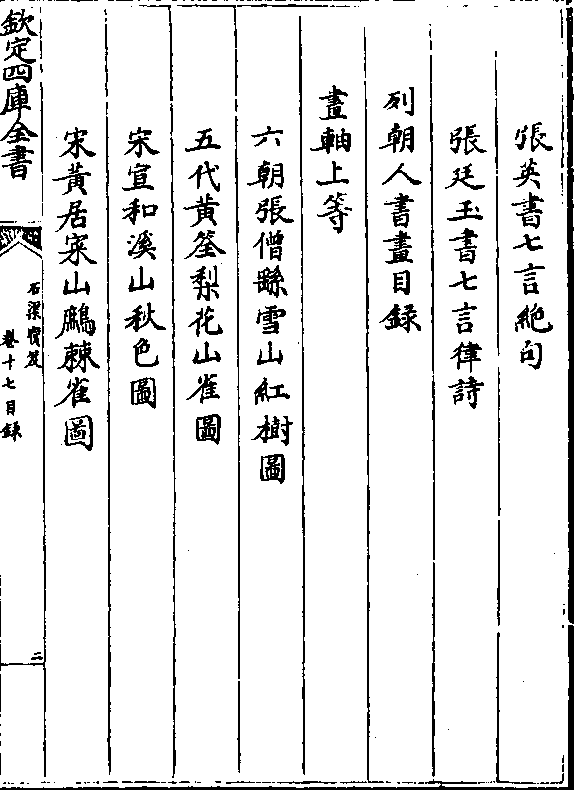 張英書七言絶句
張廷玉書七言律詩
列朝人書畫目録
畫軸上等
六朝張僧繇雪山紅樹圖
五代黄筌梨花山雀圖
宋宣和溪山秋色圖
宋黄居寀山鷓棘雀圖
欽定四庫全書
石渠寳笈
卷十七目録
二